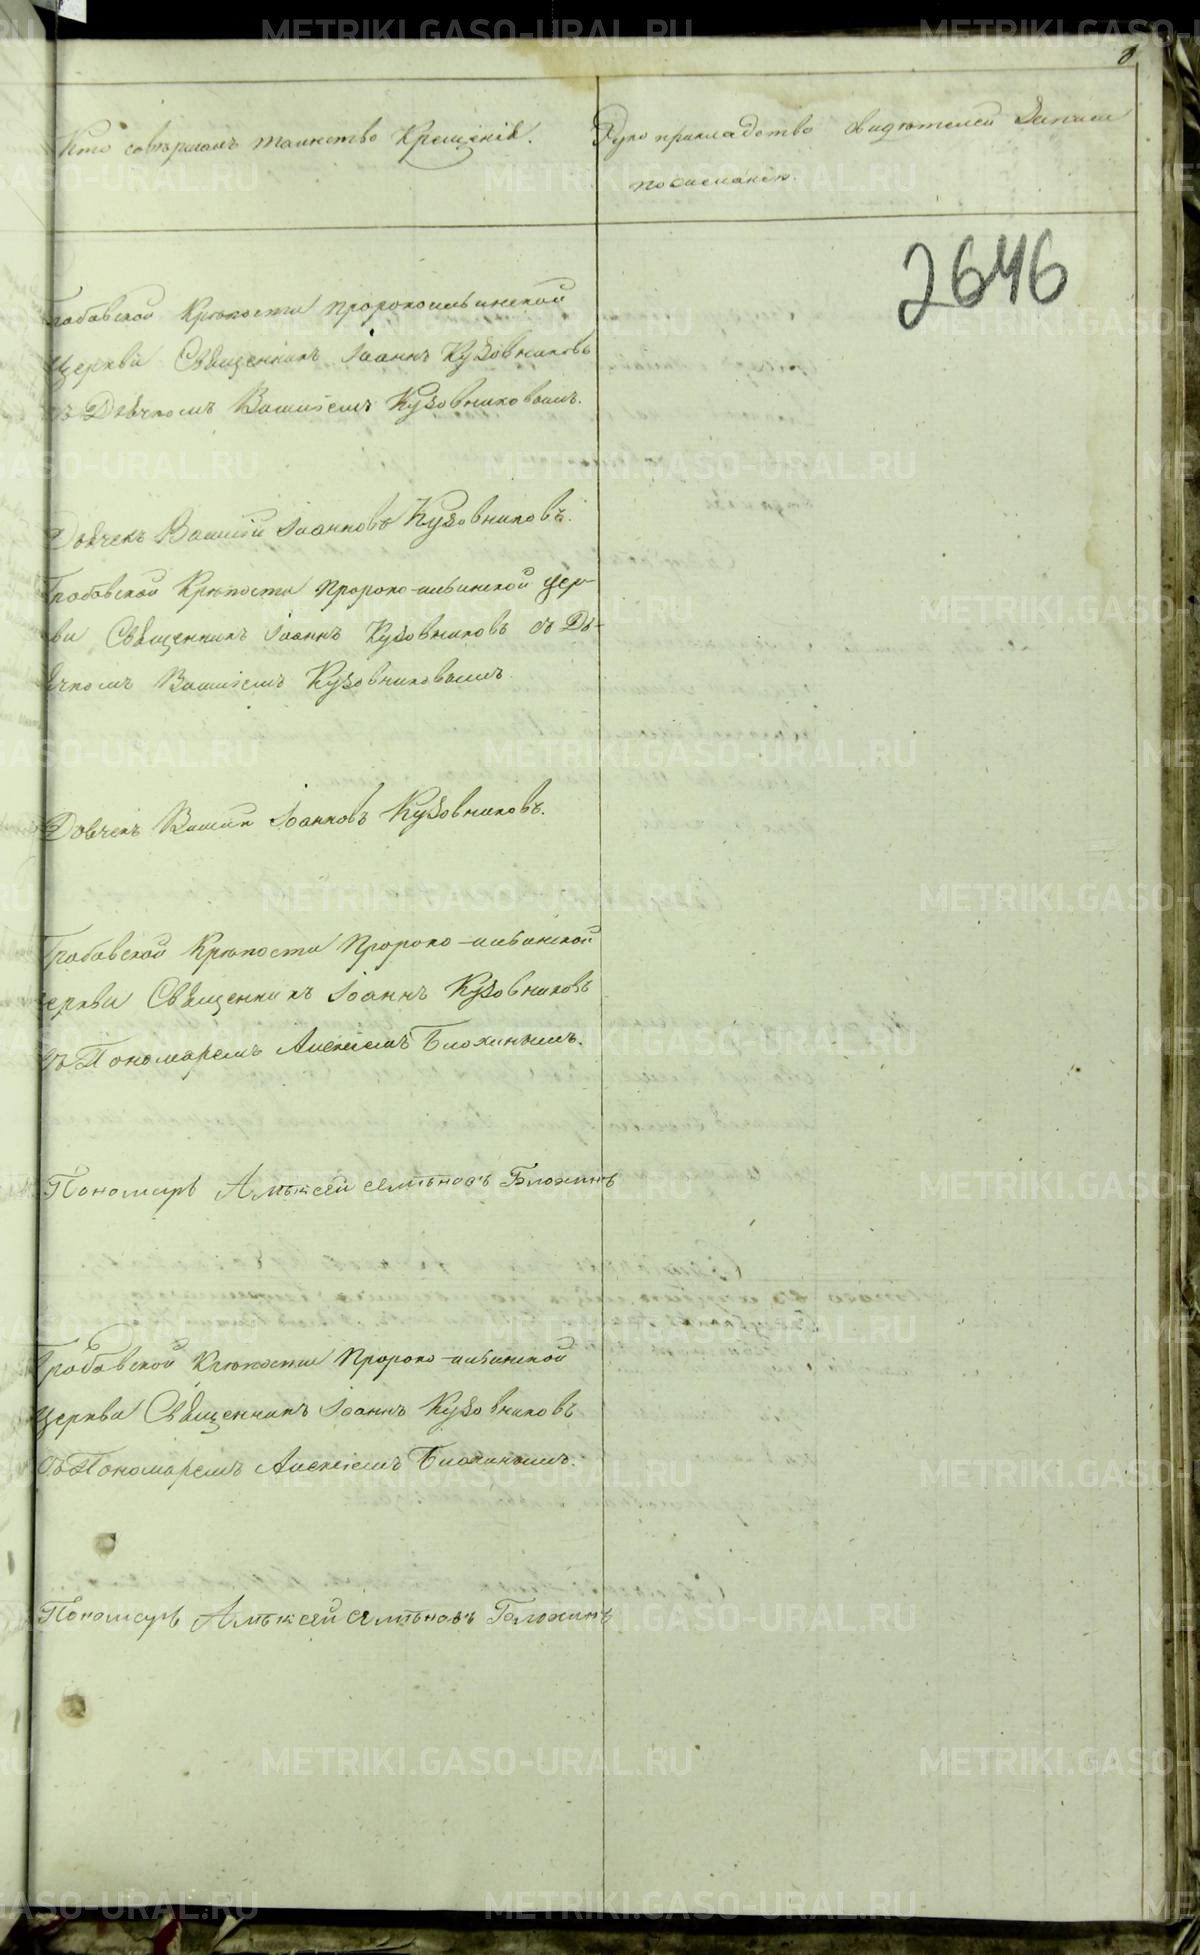 8
Кто совершалъ таинство Крещенія.
Рукоприкладство свидѣтелей записи
по желанію.
2646
Грабовской Крѣпости пророкоильинской
Церкви Священникъ Іоаннъ Кузовниковъ
съ Дьячкомъ Василіемъ Кузовниковымъ.
Дьячекъ Василій Іоанновъ Кузовниковъ.
Грабовской Крѣпости Пророко-ильинской цер-
кви Священникъ Іоаннъ Кузовниковъ съ Дь-
ячкомъ Василіемъ Кузовниковымъ.
Дьячекъ Василій Іоанновъ Кузовниковъ.
Грабовской Крѣпости Пророко-ильинской
Церкви Священникъ Іоаннъ Кузовниковъ
съ Пономаремъ Алексіемъ Блохинымъ.
Пономарь Алѣксей Блохинъ
Грабовской Крѣпости Пророко-ильинской
Церкви Священникъ Іоаннъ Кузовниковъ
съ Пономаремъ Алексіемъ Блохинымъ.
Пономарь Алѣксей Блохинъ
METRIKI.GASO-URAL.RU